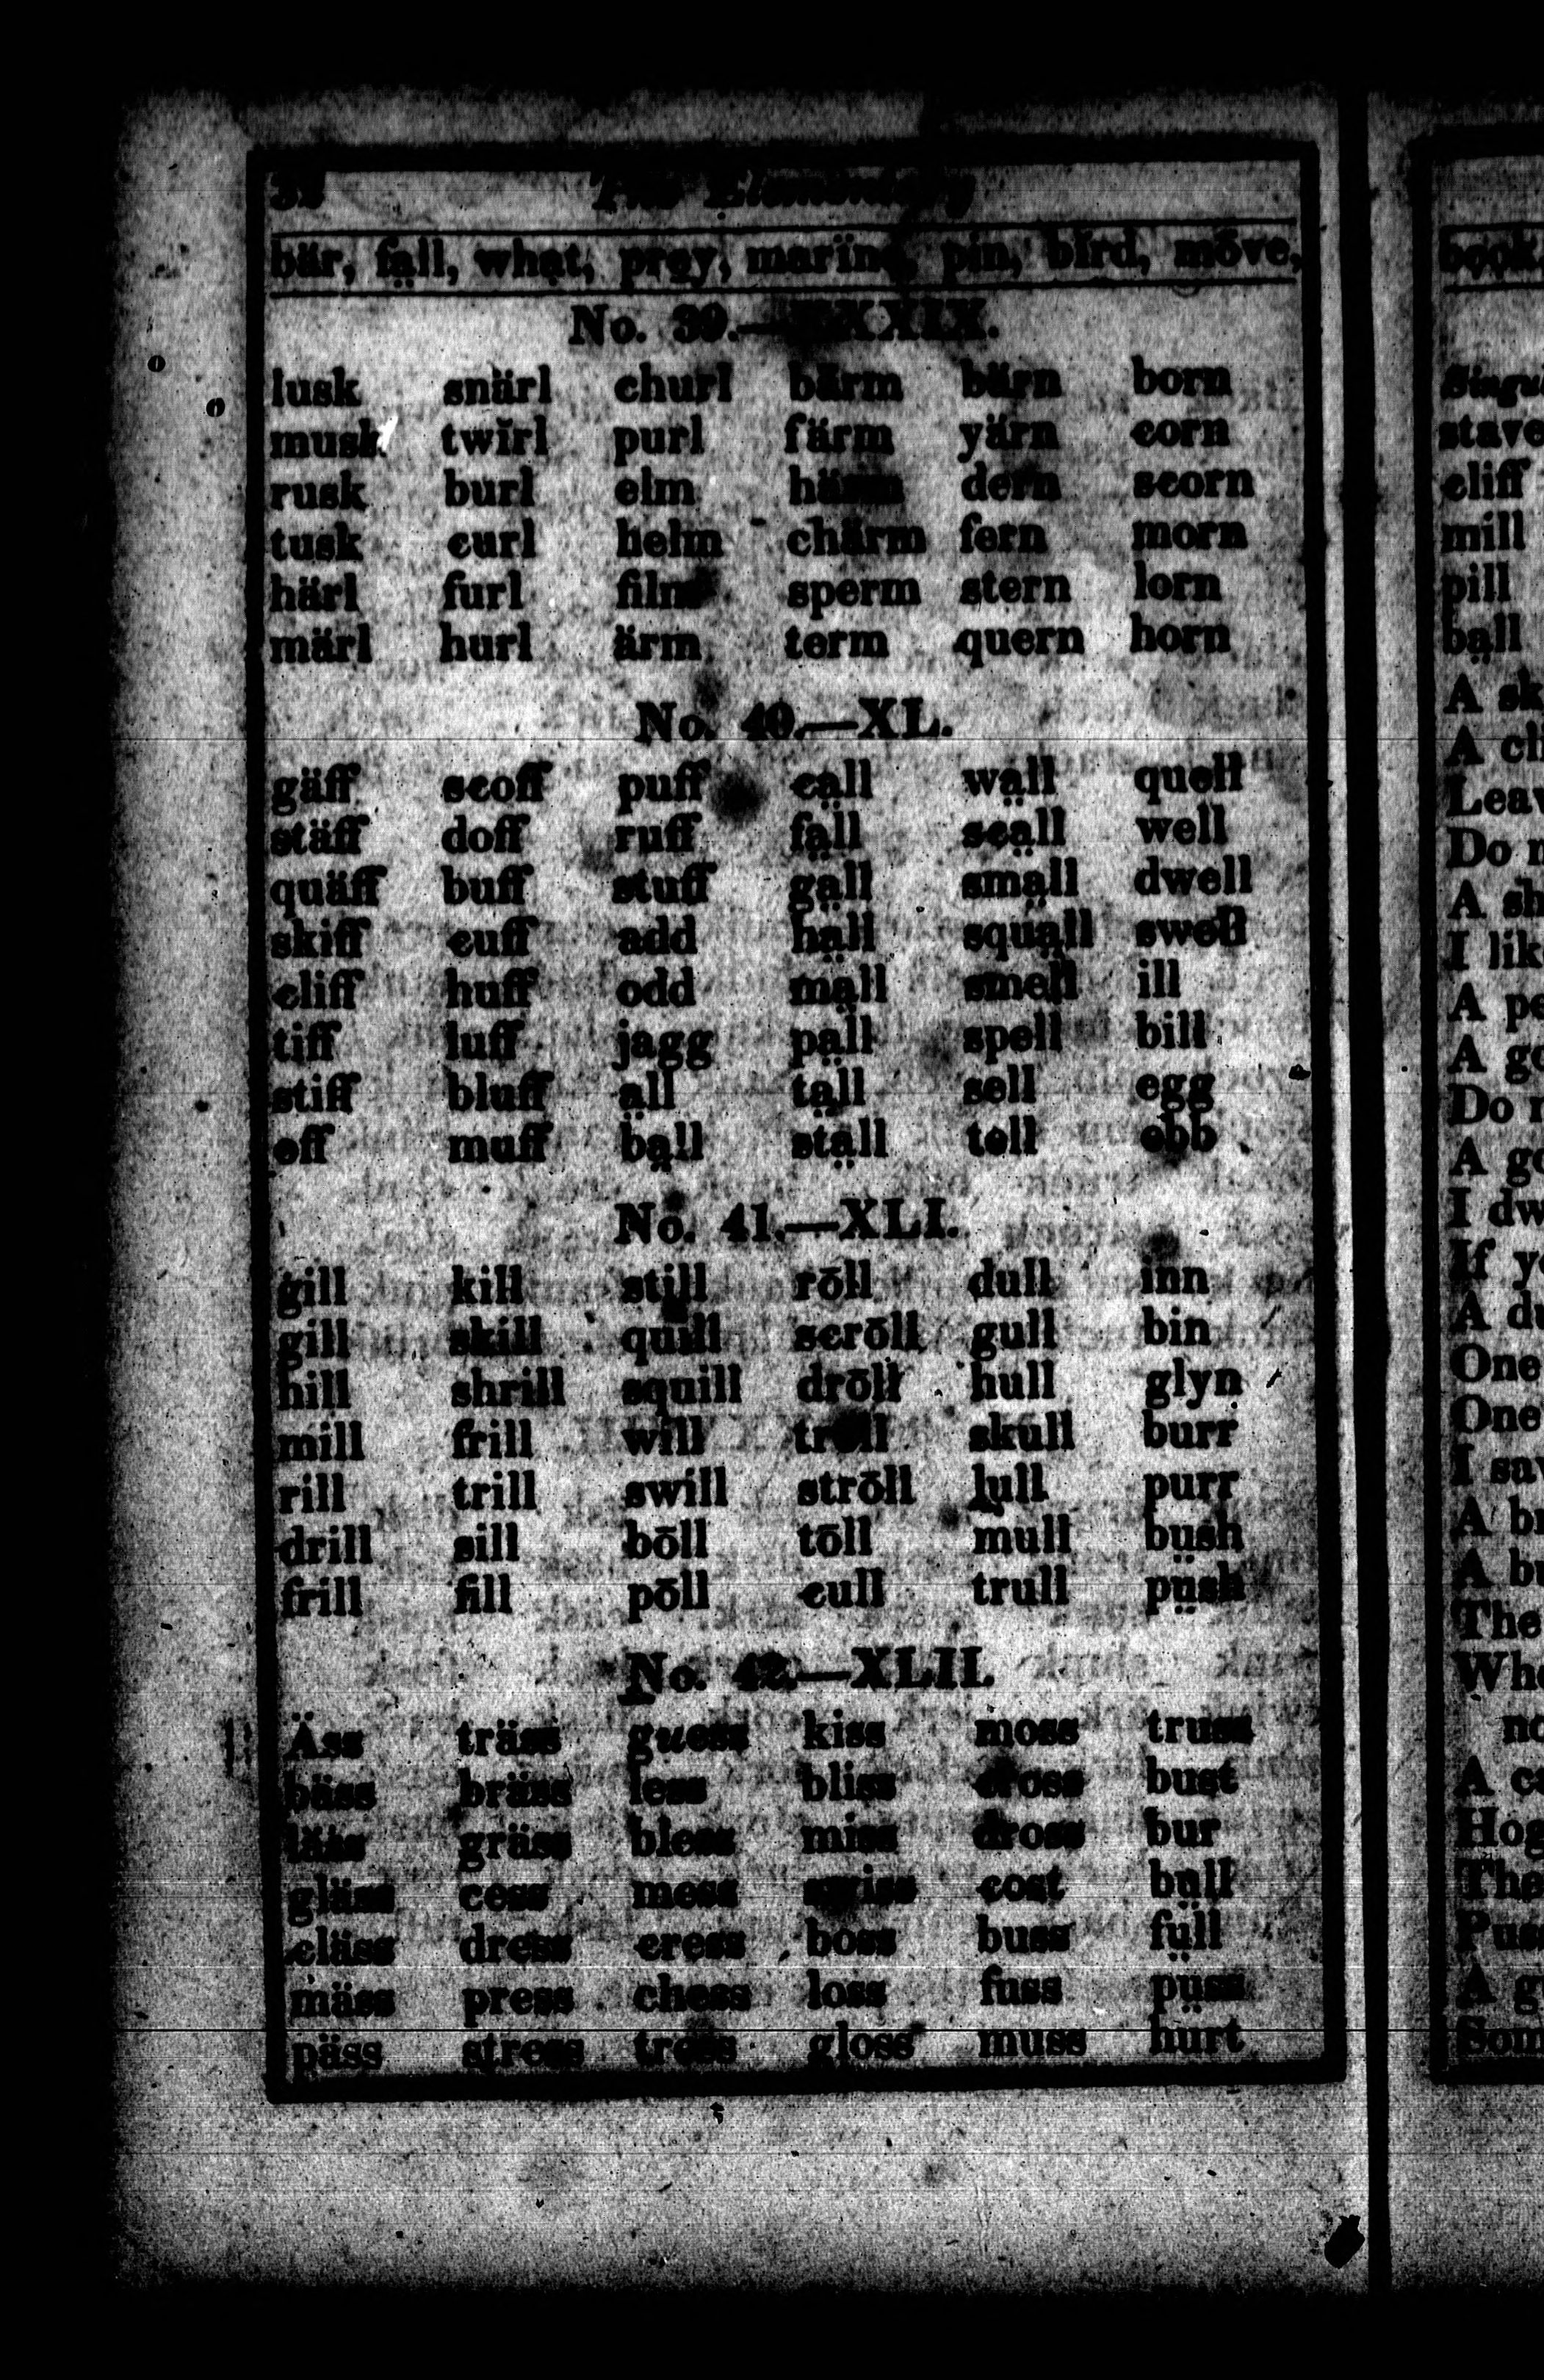 The Elementary
bär, fa̤ll, wha̤t, pre̱y, marïne, pin, bĭrd, möve,
No. 39.—XXXIX.
lusk snärl churl bärm bärn born
musk twĭrl purl färm yärn corn
rusk burl elm härm dern scorn
tusk curl helm chärm fern morn
härl furl film sperm stern lorn
märl hurl ärm term quern horn
No. 40.—XL.
gäff scoff puff ca̤ll wa̤ll quell
stäff doff ruff fa̤ll sca̤ll well
quäff buff stuff ga̤ll sma̤ll dwell
skiff cuff add ha̤ll squa̤ll swell
cliff huff odd ma̤ll smell ill
tiff luff jagg pa̤ll spell bill
stiff bluff a̤ll ta̤ll sell egg
off muff ba̤ll sta̤ll tell ebb
No. 41.—XLI.
gill kill still rōll dull inn
gill skill quill scrōll gull bin
hill shrill squill drōll hull glyn
mill frill will trōll skull burr
rill trill swill strōll lull purr
drill sill bōll tōll mull bṳsh
frill fill pōll cull trull pṳsh
No. 42.—XLII.
Äss träss guess kiss moss truss
bäss bräss less bliss cross bust
lääs gräss bless miss dross bur
gläss cess mess swiss cost bṳll
cläss dress cress boss buss fṳll
mäss press chess loss fuss pṳss
päss stress tress gloss muss hurt
book,
stave
cliff
mill
pill
ba̤ll
A
A
Leav
Do
A
I lik
A
A
Do
A
I
If
A
One
One
I
A
A
The
A
Hog
The
A
Som